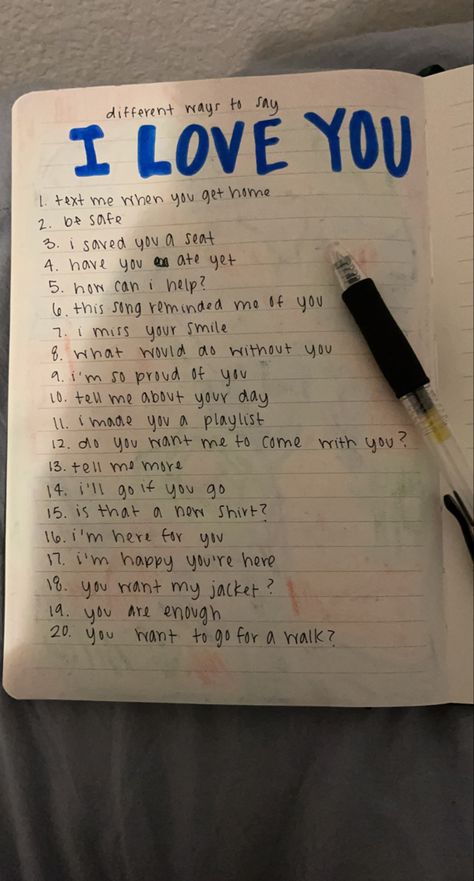 different ways to say
I LOVE YOU
1. text me when you get home
2. be safe
3. i saved you a seat
4. have you ate yet
5. how can i help?
6. this song reminded me of you
7. i miss your smile
8. what would do without you
9. i'm so proud of you
10. tell me about your day
11. i made you a playlist
12. do you want me to come with you?
13. tell me more
14. i'll go if you go
15. is that a new shirt?
16. i'm here for you
17. i'm happy you're here
18. you want my jacket?
19. you are enough
20. you want to go for a walk?